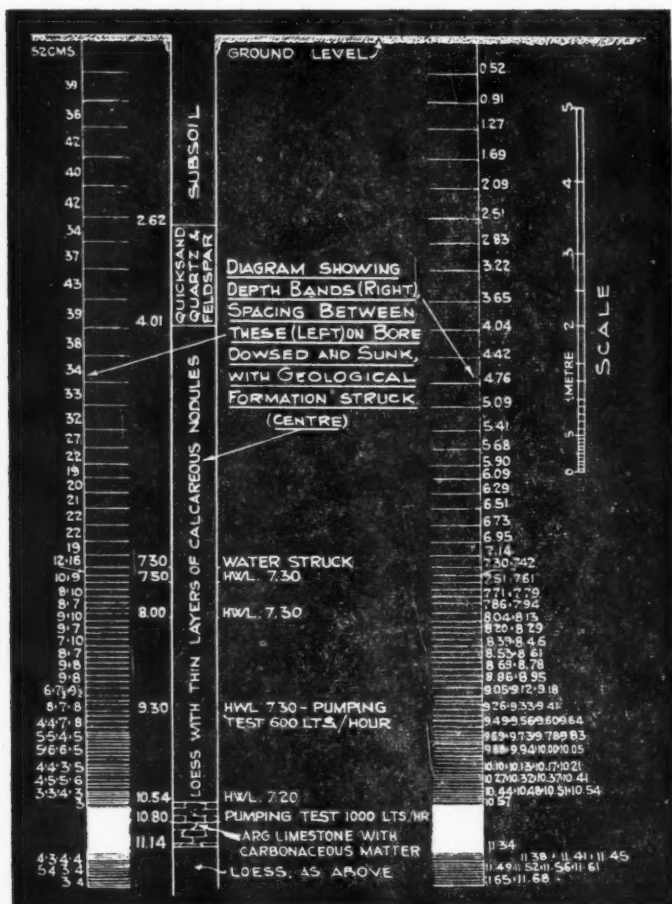 52CMS.
39
36
42
40
42
34
37
43
39
38
34
33
32
27
22
19
20
21
22
22
19
12·16
10·9
8·10
8·7
9·10
9·7
7·10
8·7
9·8
9·8
6·7½·9½
8·7·8
4·4·7·8
5·5·4·5
5·6·6·5
4·4·3·5
4·5·5·6
3·3·4·3
3
4·3·4·4
5·4·3·4
3·4
2.62
4.01
7.30
7.50
8.00
9.30
10.54
10.80
11.14
SUBSOIL
QUICKSAND
QUARTZ &
FELDSPAR
LOESS WITH THIN LAYERS OF CALCAREOUS NODULES
GROUND LEVEL
DIAGRAM SHOWING
DEPTH BANDS (RIGHT)
SPACING BETWEEN
THESE (LEFT) ON BORE
DOWSED AND SUNK,
WITH GEOLOGICAL
FORMATION STRUCK
(CENTRE)
WATER STRUCK
HWL. 7.30
HWL. 7.30
HWL 7.30 - PUMPING
TEST 600 LTS/HOUR
HWL. 7.20
PUMPING TEST 1000 LTS/HR
ARG LIMESTONE WITH
CARBONACEOUS MATTER
LOESS, AS ABOVE
0.52
0.91
1.27
1.69
2.09
2.51
2.83
3.22
3.65
4.04
4.42
4.76
5.09
5.41
5.68
5.90
6.09
6.29
6.51
6.73
6.95
7.14
7.30·7.42
7.51·7.61
7.71·7.79
7.86·7.94
8.04·8.13
8.20·8.29
8.39·8.46
8.53·8.61
8.69·8.78
8.86·8.95
9.05·9.12·9.18
9.26·9.33·9.41
9.49·9.56·9.60·9.64
9.69·9.73·9.78·9.83
9.88·9.94·10.00·10.05
10.10·10.13·10.17·10.21
10.27·10.32·10.37·10.41
10.44·10.48·10.51·10.54
10.57
11.34
11.38·11.41·11.45
11.49·11.52·11.56·11.61
11.65·11.68
5
4
3
2
1 METRE
5
0
SCALE